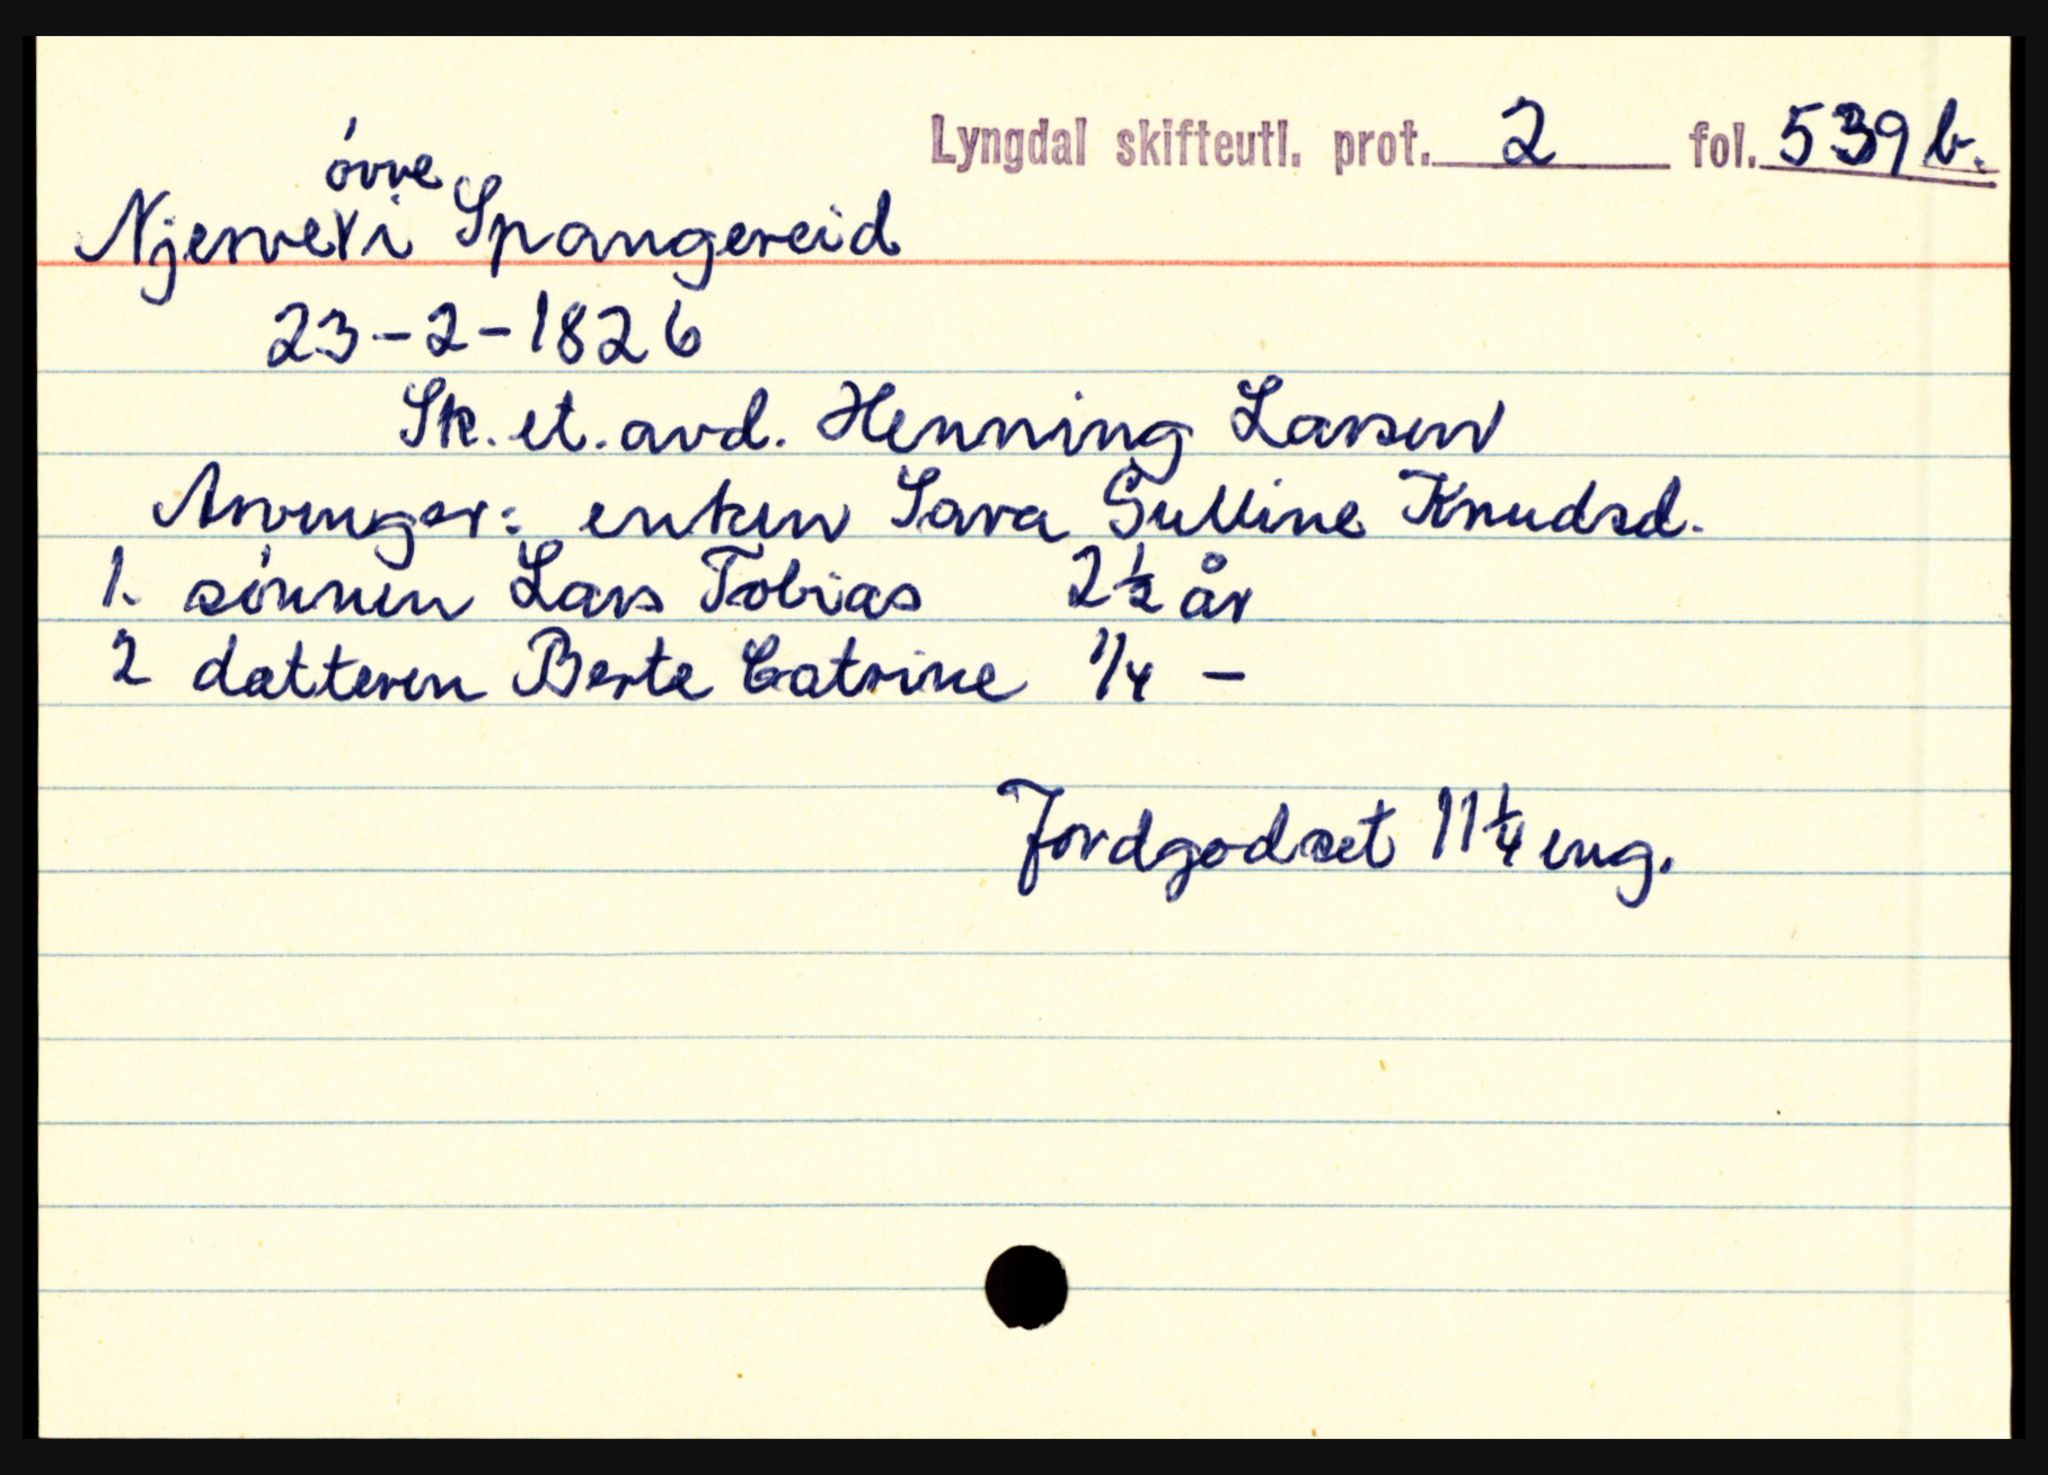 Lyngdal skifteutl. prot. 2 fol. 539 b.
øvre
Njerve i Spangereid
23-2-1826
Sk. et. avd. Henning Larsen
Arvinger: enken Sara Gulline Knudsd.
1. sønnen Lars Tobias 2 1/2 år
2 datteren Berte Catrine 1/4 -
Jordgodset 11 1/4 eng.